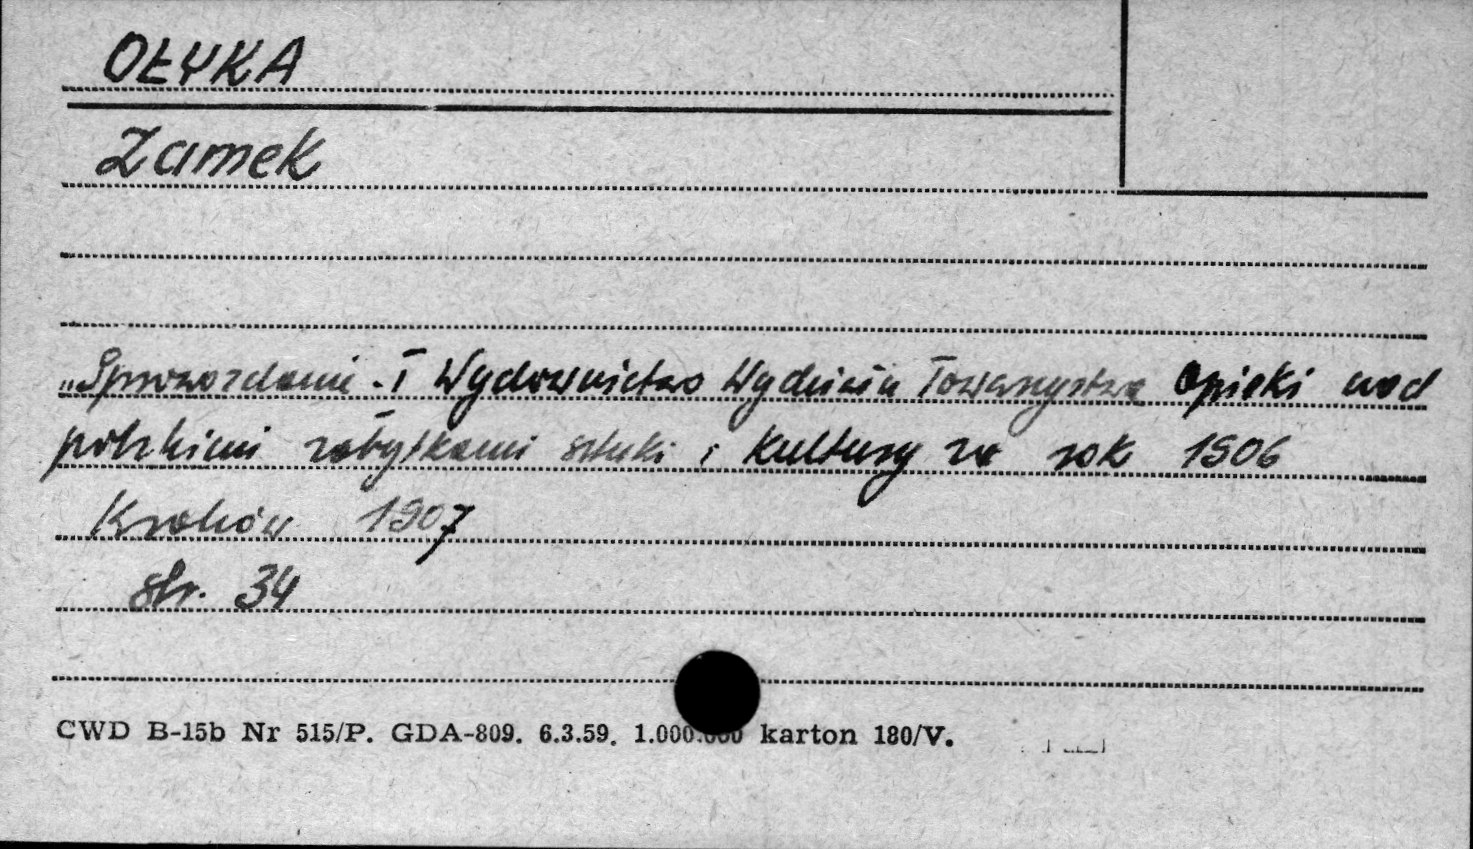 OŁYKA
Zamek
„Sprawozdanie. I Wydawnictwo Wydziału Towarzystwa Opieki nad
polskimi zabytkami sztuki i kultury za rok 1906
Kraków 1907
str. 34
CWD B-15b Nr 515/P. GDA-809. 6.3.59. 1.000.000 karton 180/V.